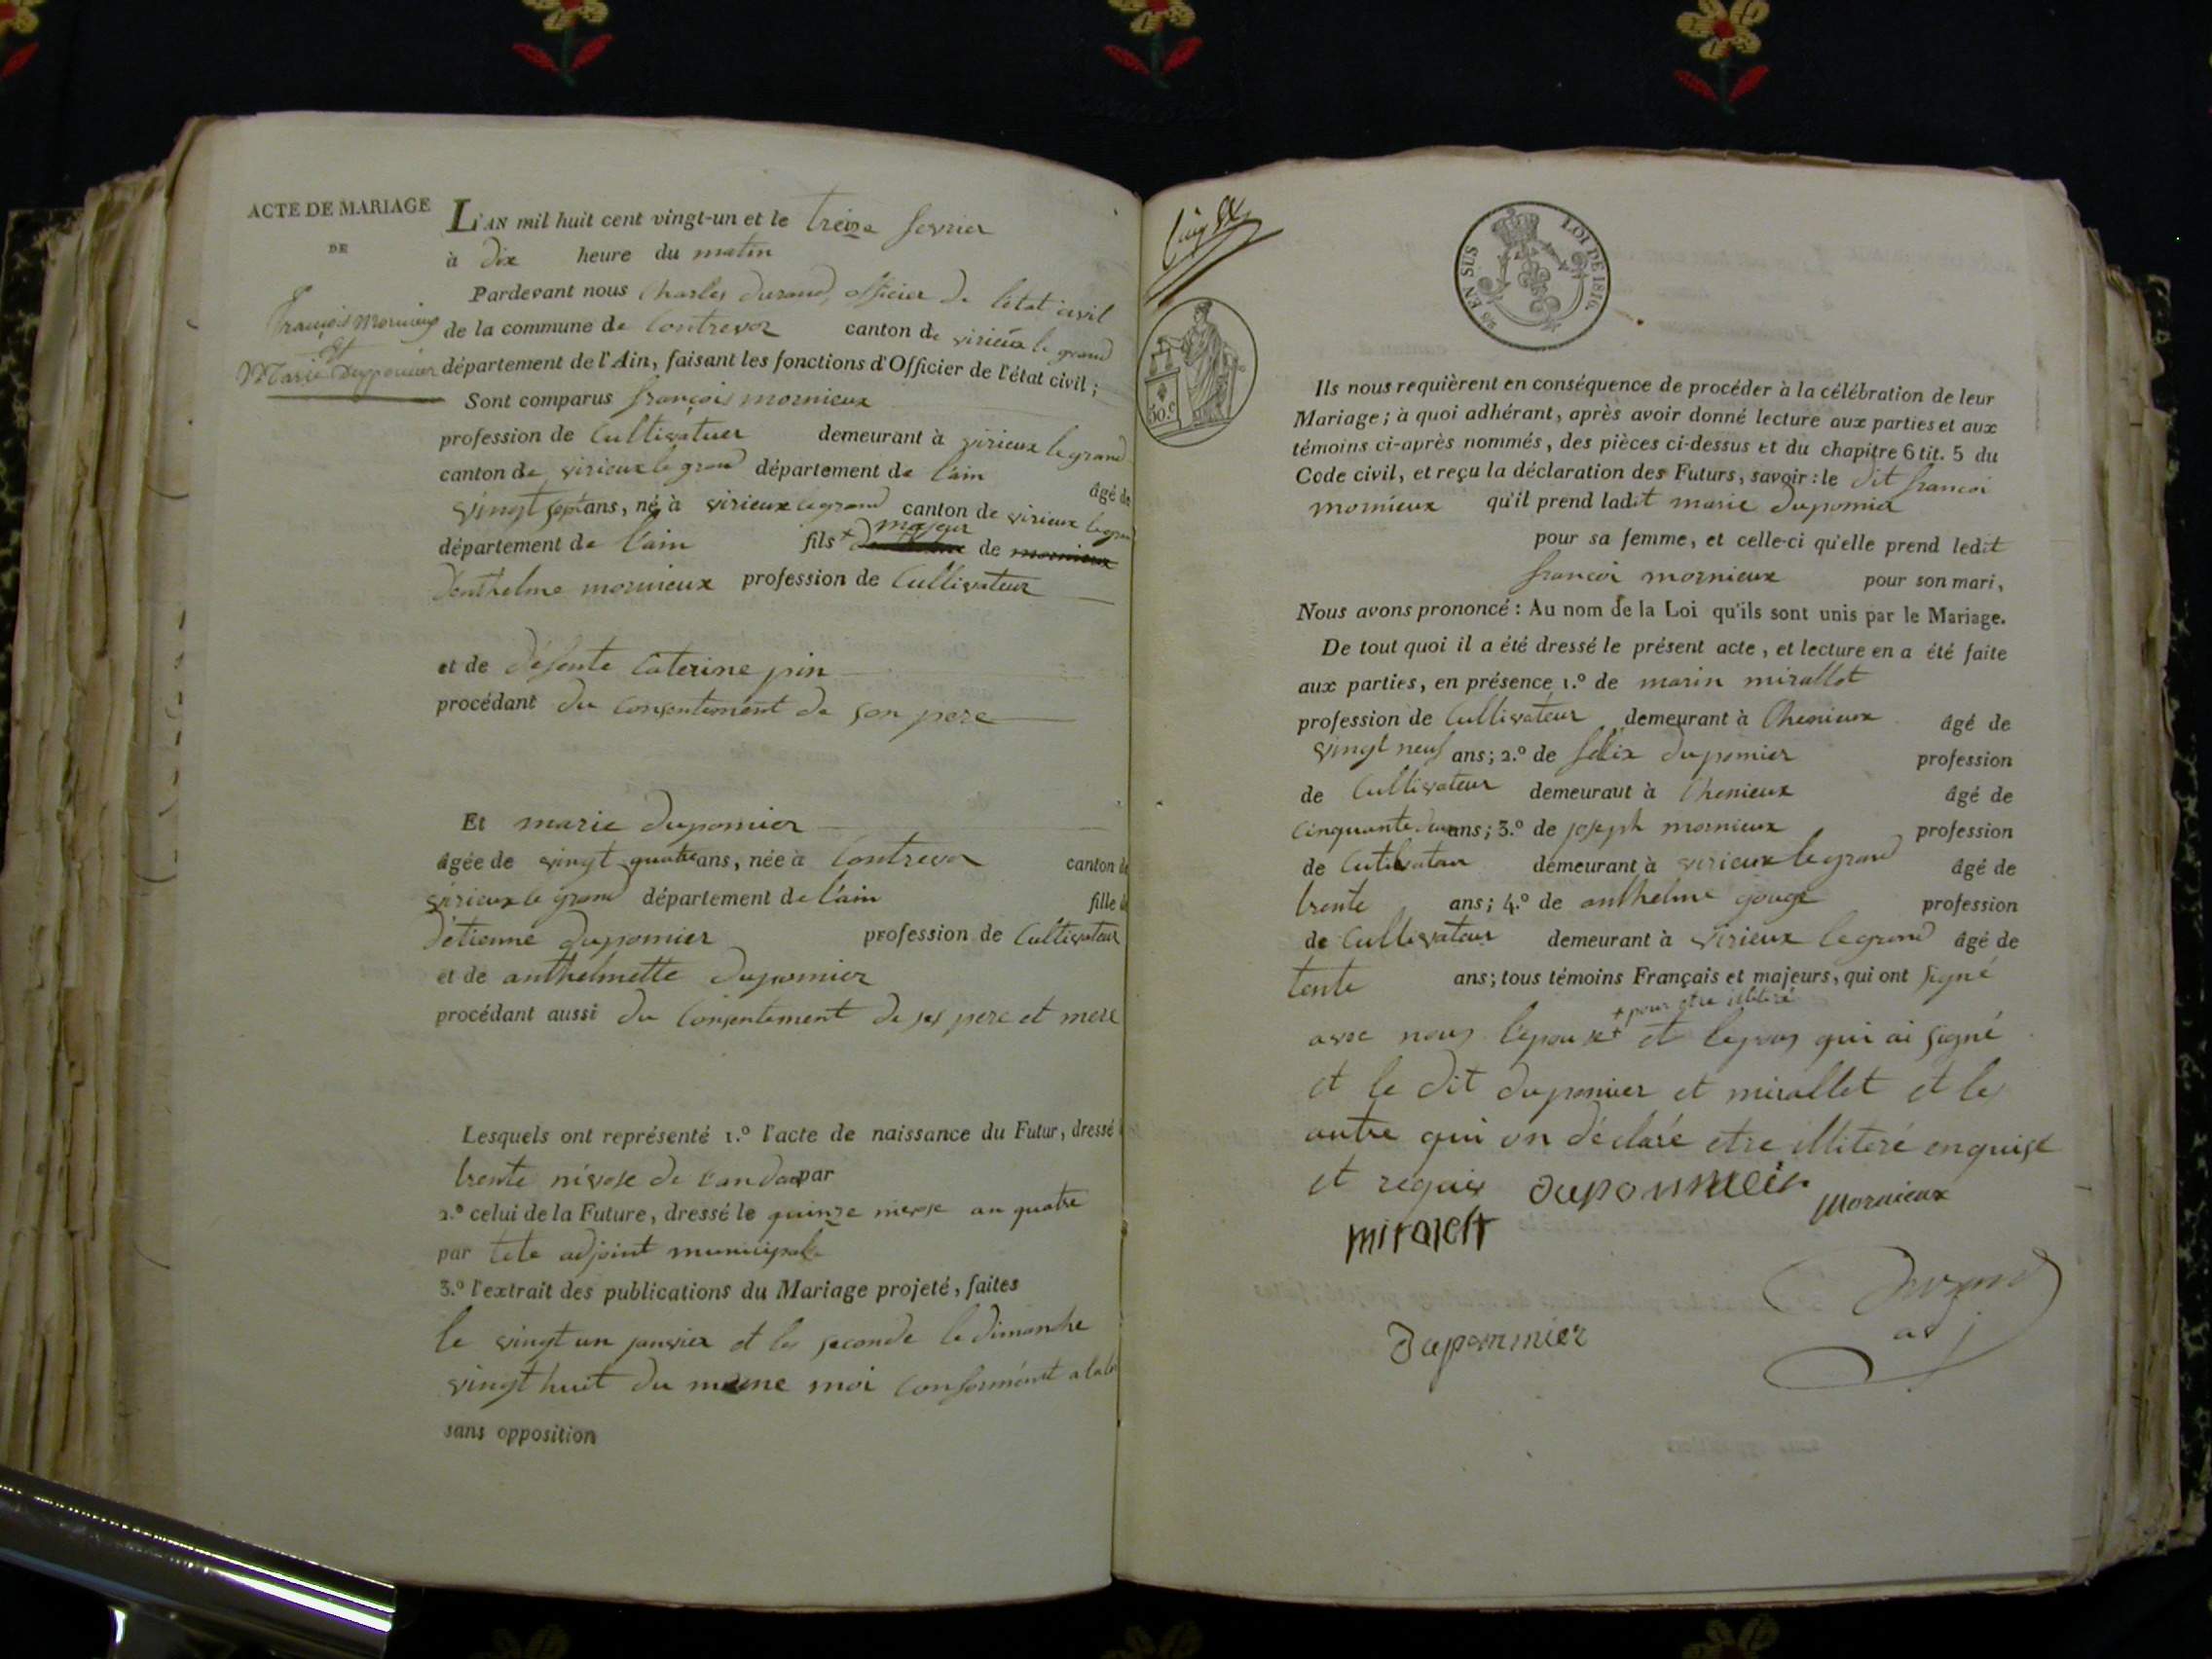 ACTE DE MARIAGE
DE
François Mornieux
et
Marie Dupomier
L'AN mil huit cent vingt-un et le treize fevrier
à dix heure du matin
Pardevant nous Charles durand, officier de l'etat civil
de la commune de Contrevoz canton de virieux le grand
département de l'Ain, faisant les fonctions d'Officier de l'état civil ;
Sont comparus françois mornieux
profession de Cultivatuer demeurant à virieux le grand
canton de virieux le grand département de l'ain
âgé de
vingt sept ans, né à virieux le grand canton de virieux le grand
majeur
département de l'ain fils + de mornieux
Denthelme mornieux profession de Cultivateur
et de défente Caterine pin
procédant du Consentement de son pere
Et marie dupomier
âgée de vingt quatre ans, née à Contrevoz canton de
virieux le grand département de l'ain fille de
d'etienne dupomier profession de Cultivateur
et de anthelmette dupomier
procédant aussi du Consentement de ses pere et mere
Lesquels ont représenté 1.º l'acte de naissance du Futur, dressé
trente nivose de l'an deux par
2.º celui de la Future, dressé le quinze nivose an quatre
par tete adjoint municipal
3.º l'extrait des publications du Mariage projeté, faites
le vingt un janvier et les seconde le dimanche
vingt huit du meme moi conformément a la loi
sans opposition
EN SUS
LOI DE 1816.
50.c
Ils nous requièrent en conséquence de procéder à la célébration de leur
Mariage ; à quoi adhérant, après avoir donné lecture aux parties et aux
témoins ci-après nommés, des pièces ci-dessus et du chapitre 6 tit. 5 du
Code civil, et reçu la déclaration des Futurs, savoir : le dit francoi
mornieux qu'il prend ladit marie dupomier
pour sa femme, et celle-ci qu'elle prend ledit
francoi mornieux pour son mari,
Nous avons prononcé : Au nom de la Loi qu'ils sont unis par le Mariage.
De tout quoi il a été dressé le présent acte, et lecture en a été faite
aux parties, en présence 1.º de marin mirallet
profession de Cultivateur demeurant à Chenieux âgé de
vingt neuf ans ; 2.º de félix dupomier profession
de Cultivateur demeuraut à Chenieux âgé de
cinquante deux ans ; 3.º de joseph mornieux profession
de Cultivateur demeurant à virieux le grand âgé de
trente ans ; 4.º de anthelme gouge profession
de Cultivateur demeurant à virieux le grand âgé de
tente ans ; tous témoins Français et majeurs, qui ont signé
+ pour etre illiteré
avec nous l'epouse + et lepous qui ai signé
et le dit dupomier et mirallet et les
autre qui on déclaré etre illiteré enquise
et requis duponmeir mornieux
miralett
durand
adj
dupommier